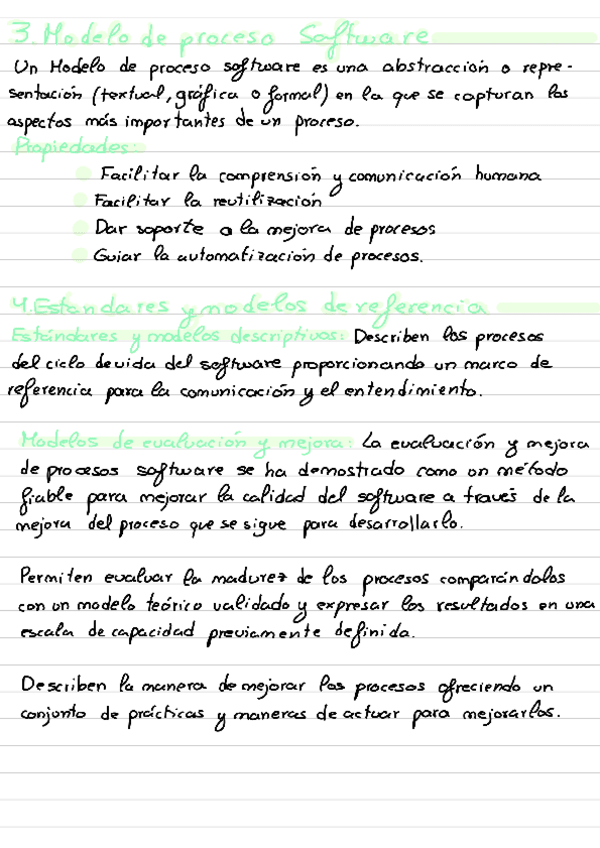 3. Modelo de proceso Software
Un Modelo de proceso software es una abstracción o repre-
sentación (textual, gráfica o formal) en la que se capturan los
aspectos más importantes de un proceso.
Propiedades:
Facilitar la comprensión y comunicación humana
Facilitar la reutilización
Dar soporte a la mejora de procesos
Guiar la automatización de procesos.
4. Estandares y modelos de referencia
Estándares y modelos descriptivos: Describen los procesos
del ciclo de vida del software proporcionando un marco de
referencia para la comunicación y el entendimiento.
Modelos de evaluación y mejora: La evaluación y mejora
de procesos software se ha demostrado como un método
fiable para mejorar la calidad del software a través de la
mejora del proceso que se sigue para desarrollarlo.
Permiten evaluar la madurez de los procesos comparándolos
con un modelo teórico validado y expresar los resultados en una
escala de capacidad previamente definida.
Describen la manera de mejorar los procesos ofreciendo un
conjunto de prácticas y maneras de actuar para mejorarlos.